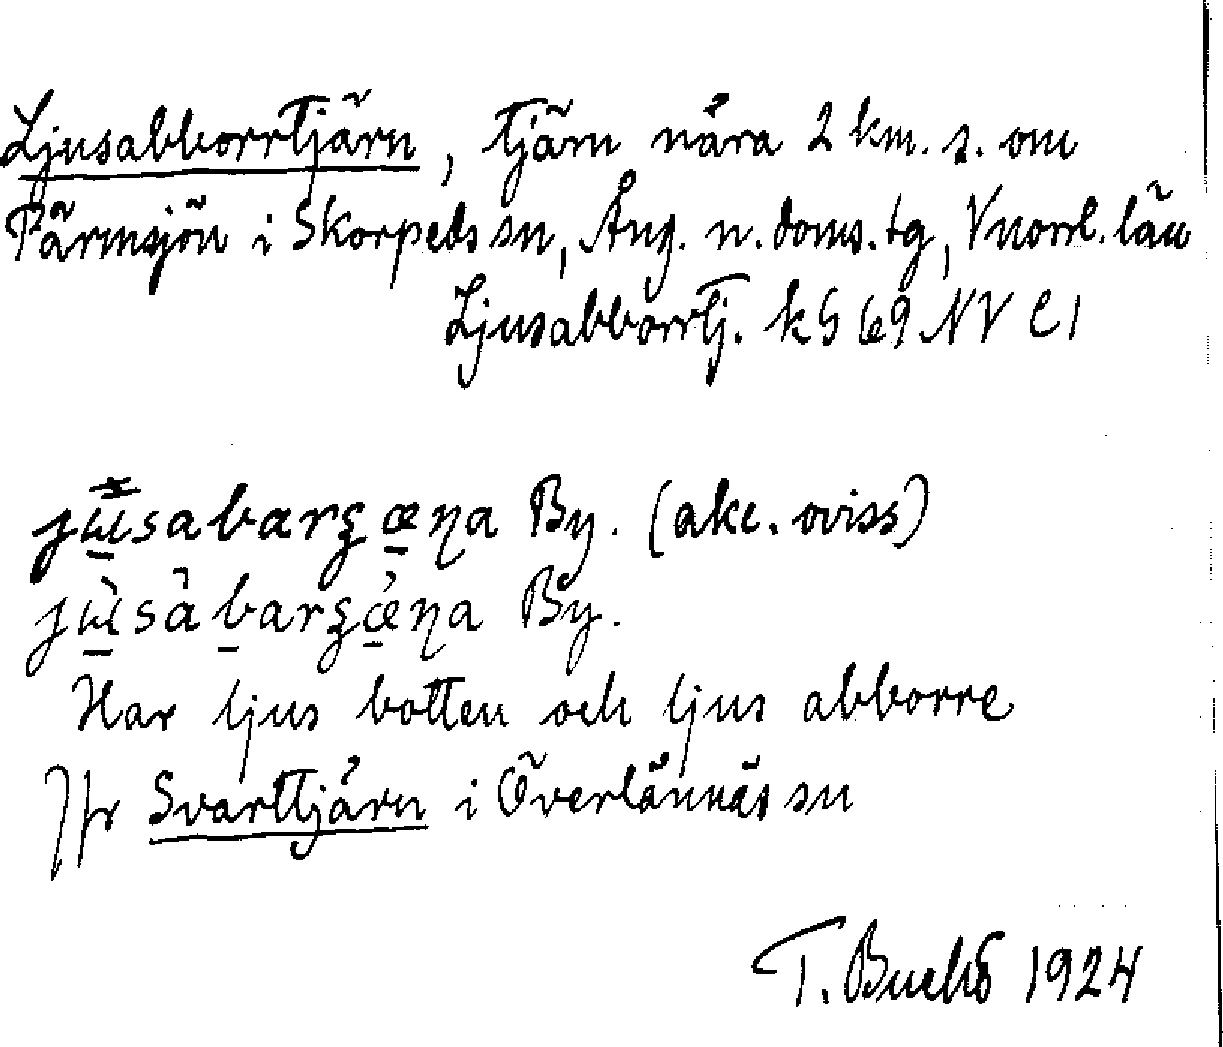 Ljusabborrtjärn, tjärn nära 2 km. s. om
Pärmsjön i Skorpeds sn, Ång. n. doms. tg, Vnorrl. län
Ljusabborrtj. kS 69 NV C1
By. (akc. oviss)
By.
Har ljus botten och ljus abborre
Jfr Svarttjärn i Överlännäs sn
T. Bucht 1924